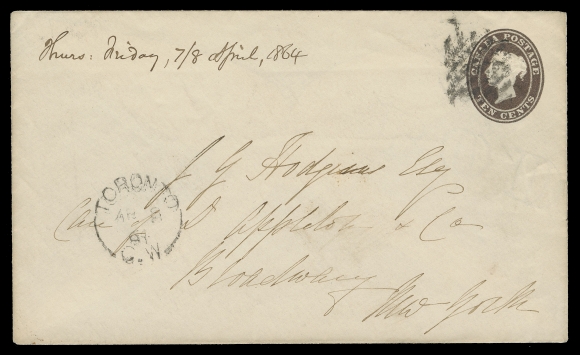 Thurs: Friday, 7/8 April, 1864
CANADA POSTAGE
TEN CENTS
J G Hodgins Esq
Care of D Appleton & Co
Broadway
New York
TORONTO
AP
C.W